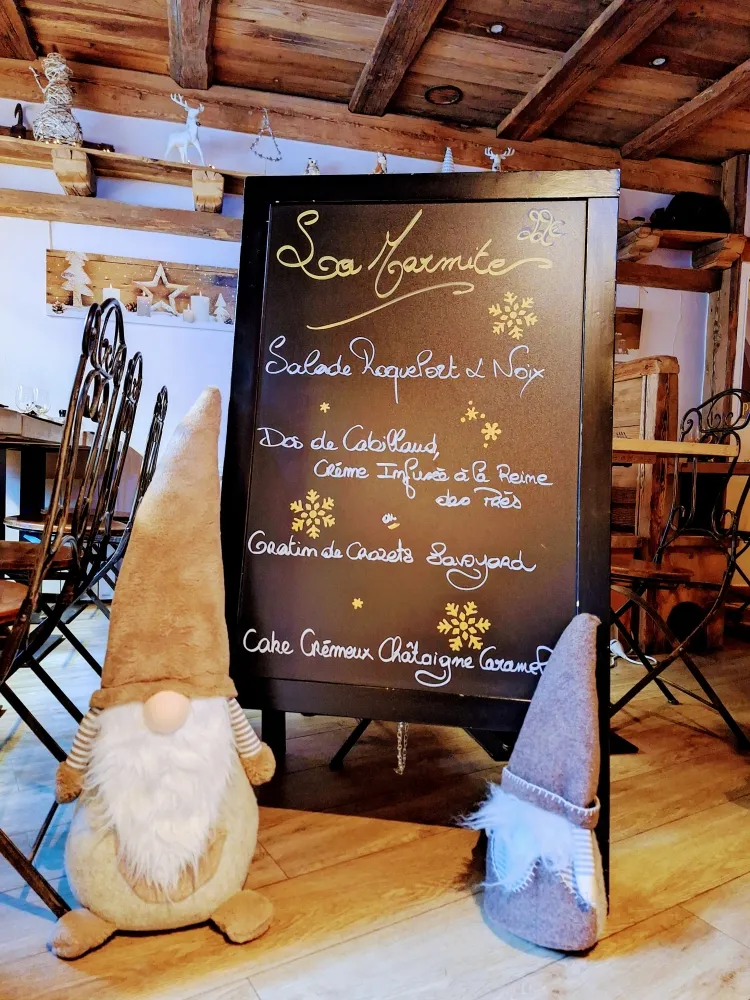 La Marmite
Salade Roquefort & Noix
Dos de Cabillaud,
Crème Infusée à la Reine
des Prés
ou
Gratin de Crozets Savoyard
Cake Crémeux Châtaigne Caramel